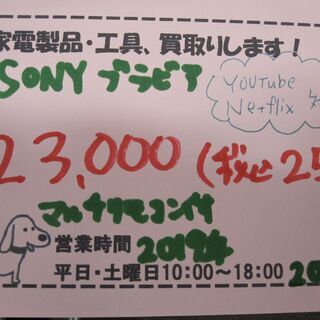 家電製品・工具、買取りします！
SONY ブラビア
YOUTube
Netflix
23,000 (税込25
マルチリモコン付
営業時間 2019年
平日・土曜日10:00～18:00